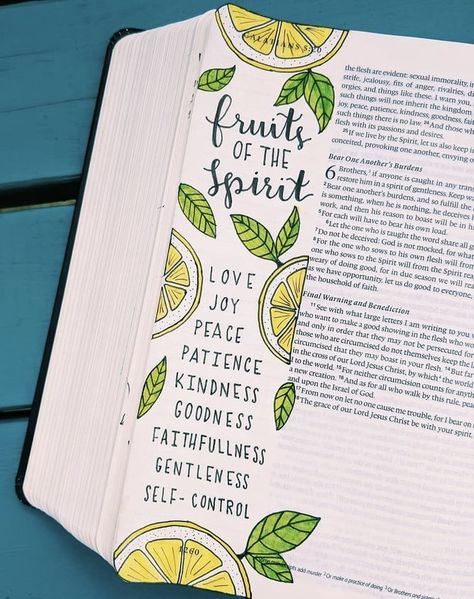 GALATIANS 5:20
fruits
OF THE
Spirit
LOVE
JOY
PEACE
PATIENCE
KINDNESS
GOODNESS
FAITHFULLNESS
GENTLENESS
SELF-CONTROL
1260
the flesh are evident: sexual immorality, i
strife, jealousy, fits of anger, rivalries, di
orgies, and things like these. I warn you,
such things will not inherit the kingdom
joy, peace, patience, kindness, goodness, fai
such things there is no law. 24 And those wh
flesh with its passions and desires.
25 If we live by the Spirit, let us also keep i
conceited, provoking one another, envying on
Bear One Another's Burdens
6 Brothers, if anyone is caught in any tran
restore him in a spirit of gentleness. Keep wa
2 Bear one another's burdens, and so fulfill the
is something, when he is nothing, he deceives h
work, and then his reason to boast will be in hi
5 For each will have to bear his own load.
6 Let the one who is taught the word share all g
7 Do not be deceived: God is not mocked, for what
8 For the one who sows to his own flesh will from
one who sows to the Spirit will from the Spirit rea
weary of doing good, for in due season we will rea
as we have opportunity, let us do good to everyone
the household of faith.
Final Warning and Benediction
11 See with what large letters I am writing to you w
who want to make a good showing in the flesh who wo
and only in order that they may not be persecuted for
those who are circumcised do not themselves keep the la
circumcised that they may boast in your flesh. 14 But far
in the cross of our Lord Jesus Christ, by which the worl
to the world. 15 For neither circumcision counts for anyth
a new creation. 16 And as for all who walk by this rule, pea
and upon the Israel of God.
17 From now on let no one cause me trouble, for I bear on
18 The grace of our Lord Jesus Christ be with your spirit,
add murder 2 Or make a practice of doing 3 Or Brothers and sisters